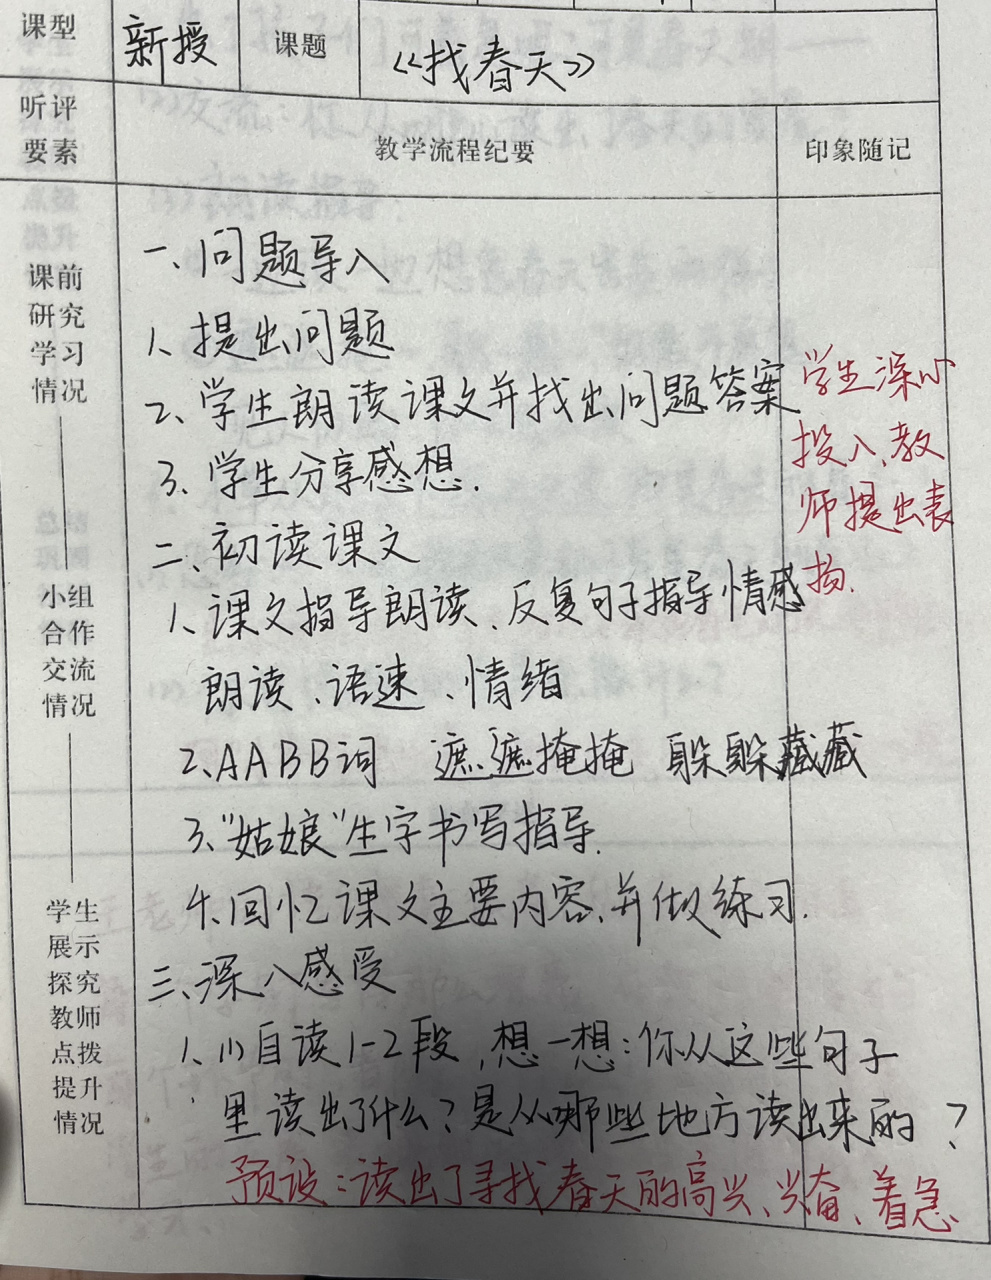 课型 新授 课题 《找春天》
听评
要素
教学流程纪要
印象随记
课前
研究
学习
情况
小组
合作
交流
情况
学生
展示
探究
教师
点拨
提升
情况
一、问题导入
1、提出问题
2、学生朗读课文并找出问题答案
3、学生分享感想.
二、初读课文
1、课文指导朗读、反复句子指导情感
朗读、语速、情绪
2、AABB词 遮遮掩掩 躲躲藏藏
3、“姑娘”生字书写指导.
4、回忆课文主要内容、并做练习.
三、深入感受
1、(1)自读1-2段,想一想:你从这些句子
里读出了什么?是从哪些地方读出来的?
预设:读出了寻找春天的高兴、兴奋、着急
学生深心
投入、教
师提出表
扬.